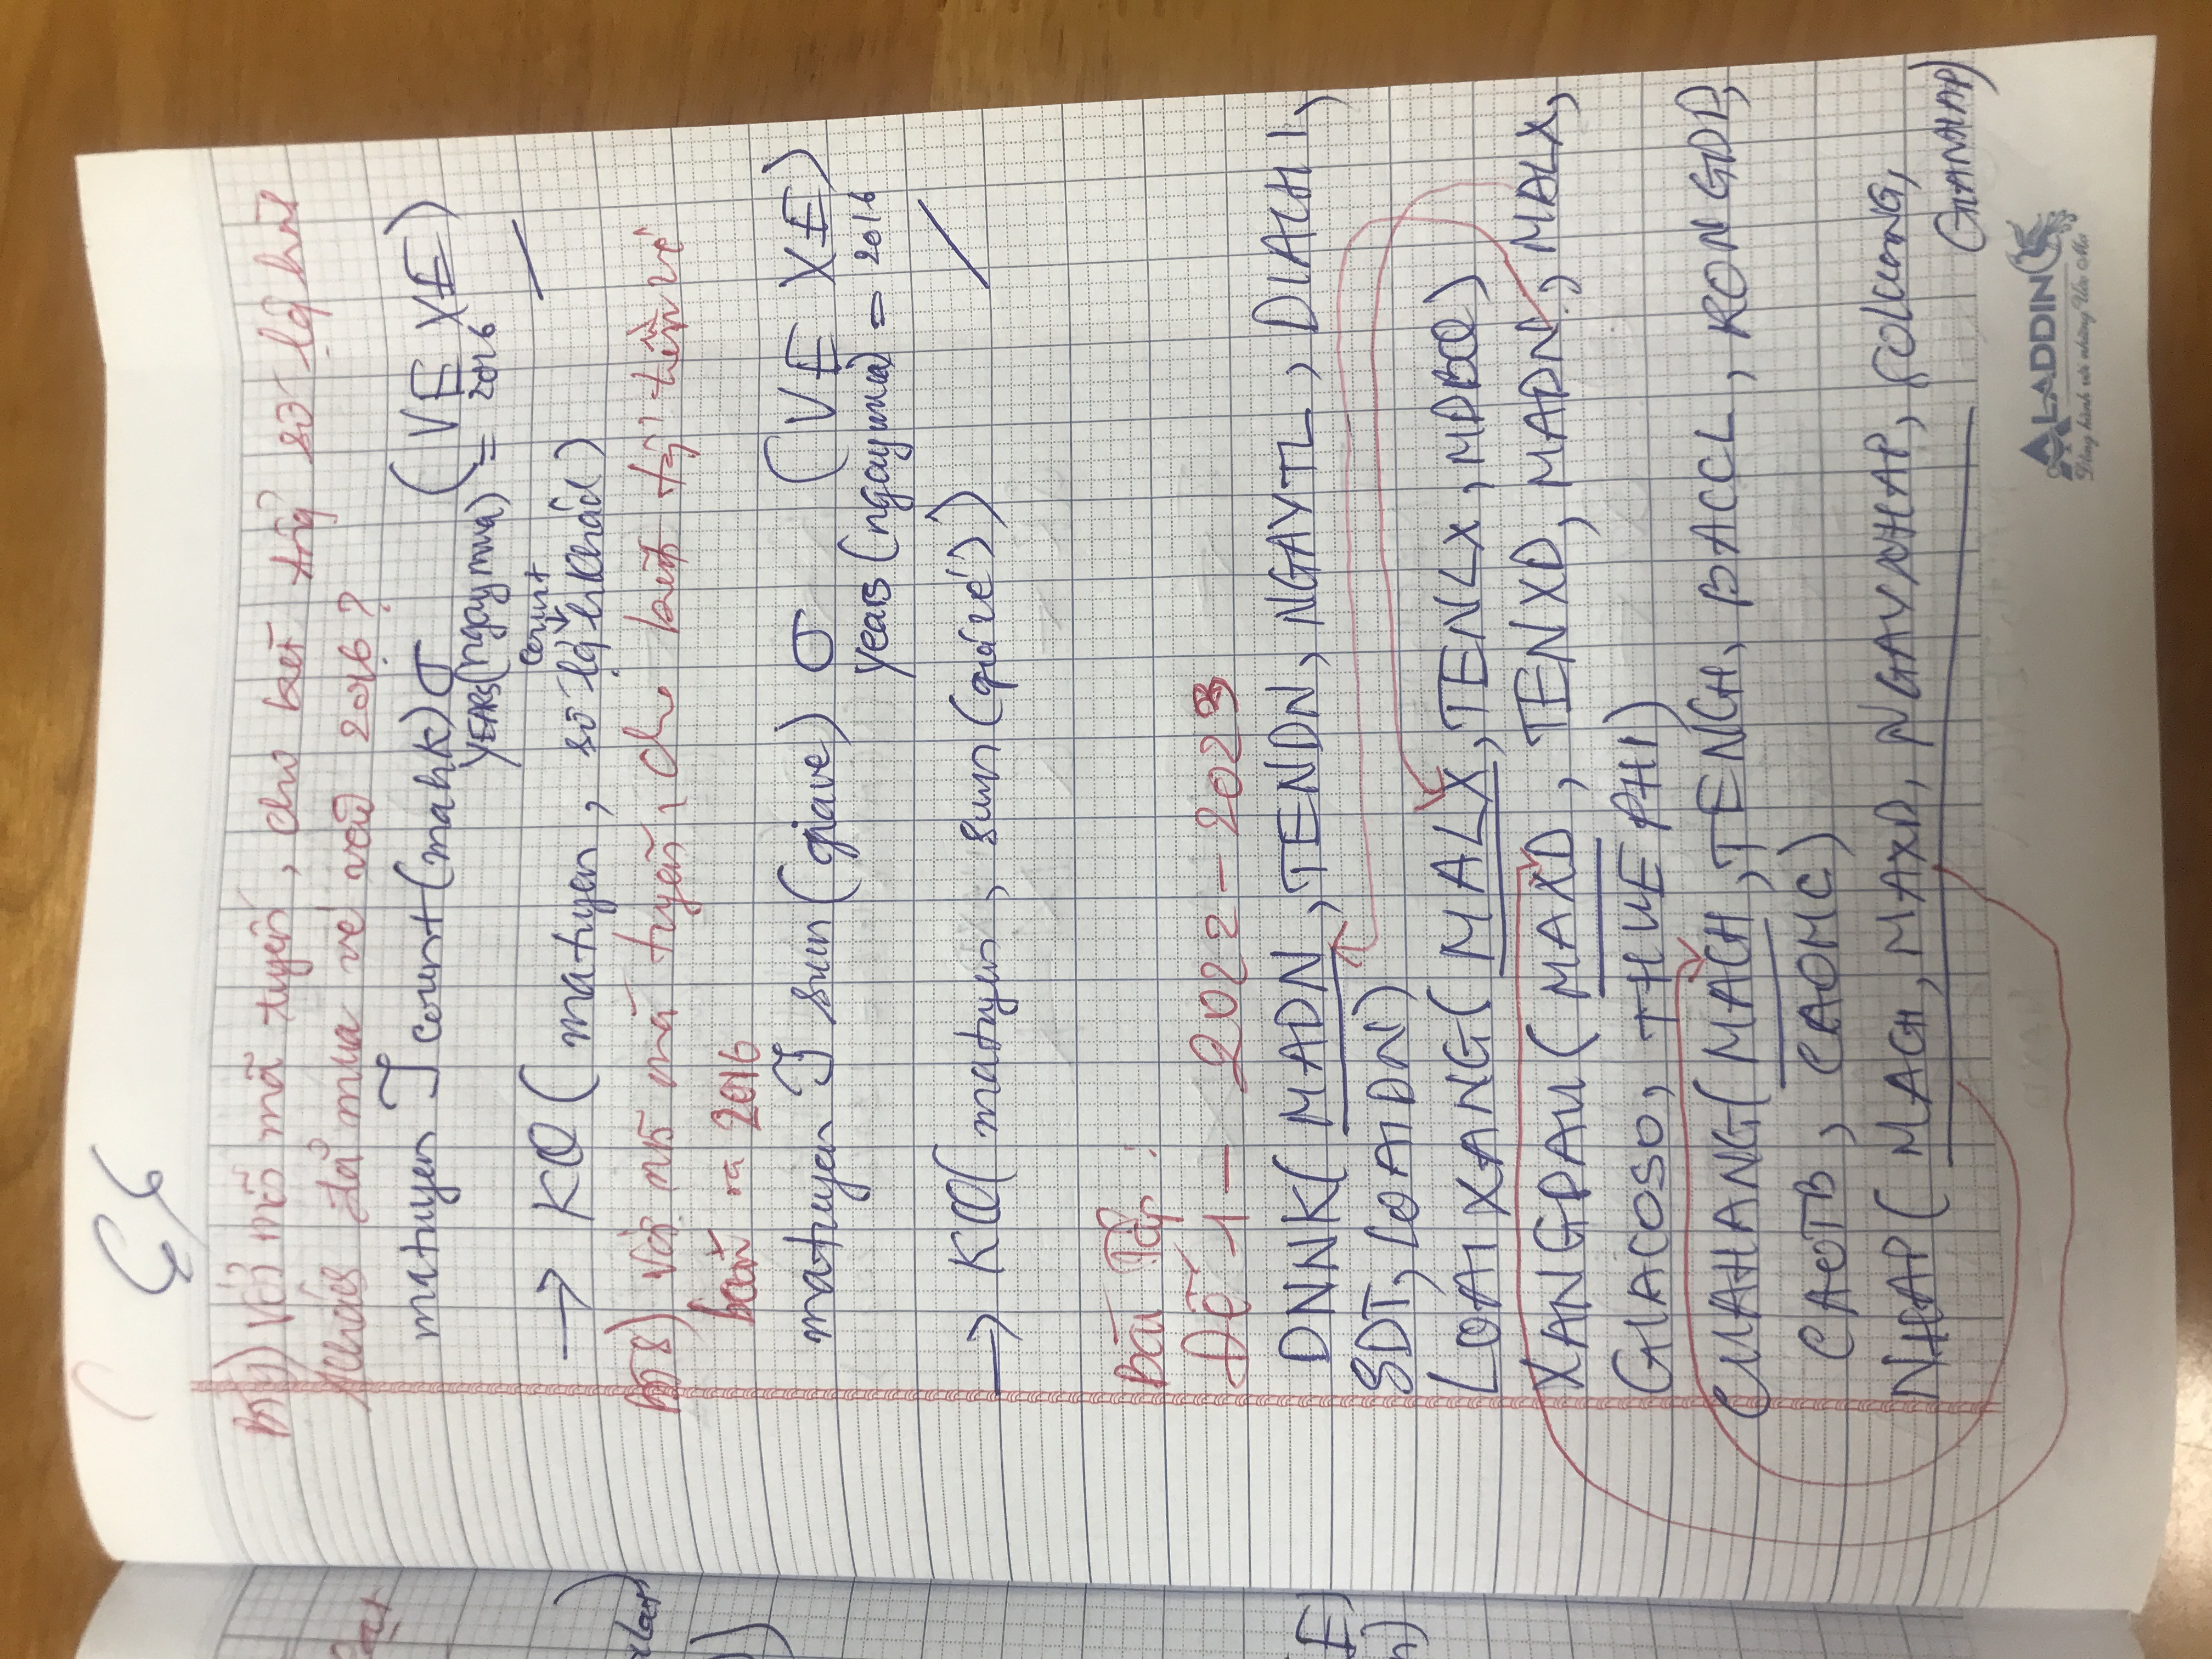 BT7) Với mỗi mã tuyến, cho biết tổng số lượt hành
khách đã mua vé vào 2016?
matuyen ℑ count(mahk) σ (VE XE)
YEARS(ngaymua) = 2016
count
→ KQ(matuyen, số lượt hkhách)
BT8) Với mỗi mã tuyến, cho biết tổng tiền vé
bán ra 2016
matuyen ℑ sum(giave) σ (VE XE)
years(ngaymua) = 2016
→ KQ(matuyen, sum(giá vé))
Bài Tập:
Đề 1 - 2022-2023
DNNK(MADN, TENDN, NGAYTL, DIACHI,
SDT, LOAIDN)
LOAIXANG(MALX, TENLX, MDBQ)
XANGDAU(MAXD, TENXD, MADN, MALX,
GIACOSO, THUEPHI)
CUAHANG(MACH, TENCH, BACCL, RONGDD,
CAOTB, CAOMC)
NHAP(MACH, MAXD, NGAYNHAP, SOLUONG,
GIANHAP)
ALADDIN
Đồng hành với những Ước Mơ